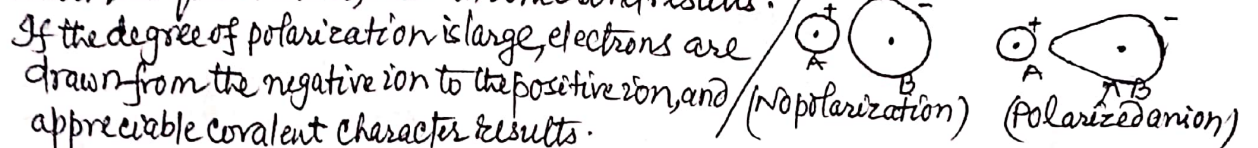 If the degree of polarization is large, electrons are
drawn from the negative ion to the positive ion, and
appreciable covalent character results.
+ - + -
A B A B
(No polarization) (Polarized anion)